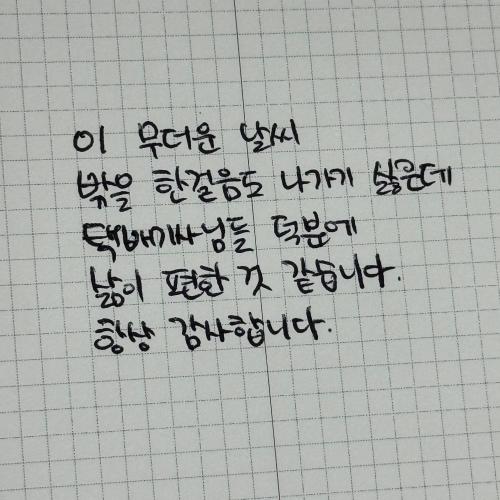 이 무더운 날씨
밖을 한걸음도 나가기 싫은데
택배기사님들 덕분에
삶이 편한 것 같습니다.
항상 감사합니다.